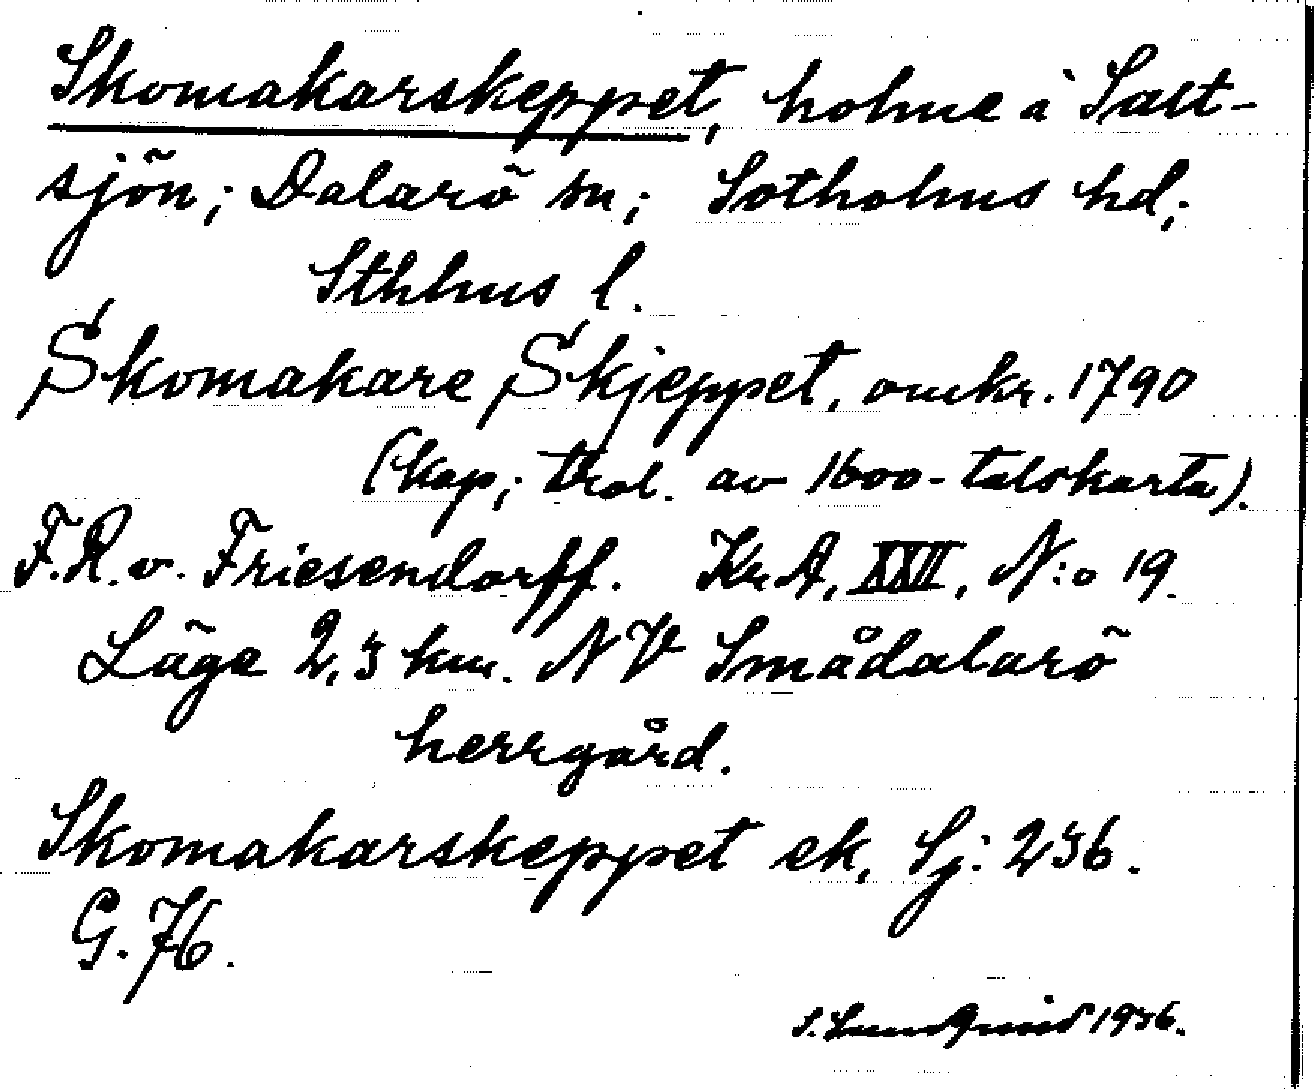 Skomakarskeppet, holme i Salt-
sjön; Dalarö sn; Sotholms hd;
Sthlms l.
Skomakare Skjeppet, omkr. 1790
(kop; trol. av 1600-talskarta).
F.R.v. Friesendorff. Kr.A, XXII, N:o 19.
Läge 2,3 km. NV Smådalarö
herrgård.
Skomakarskeppet ek, Sj: 236.
G. 76.
S. Lundqvist 1936.